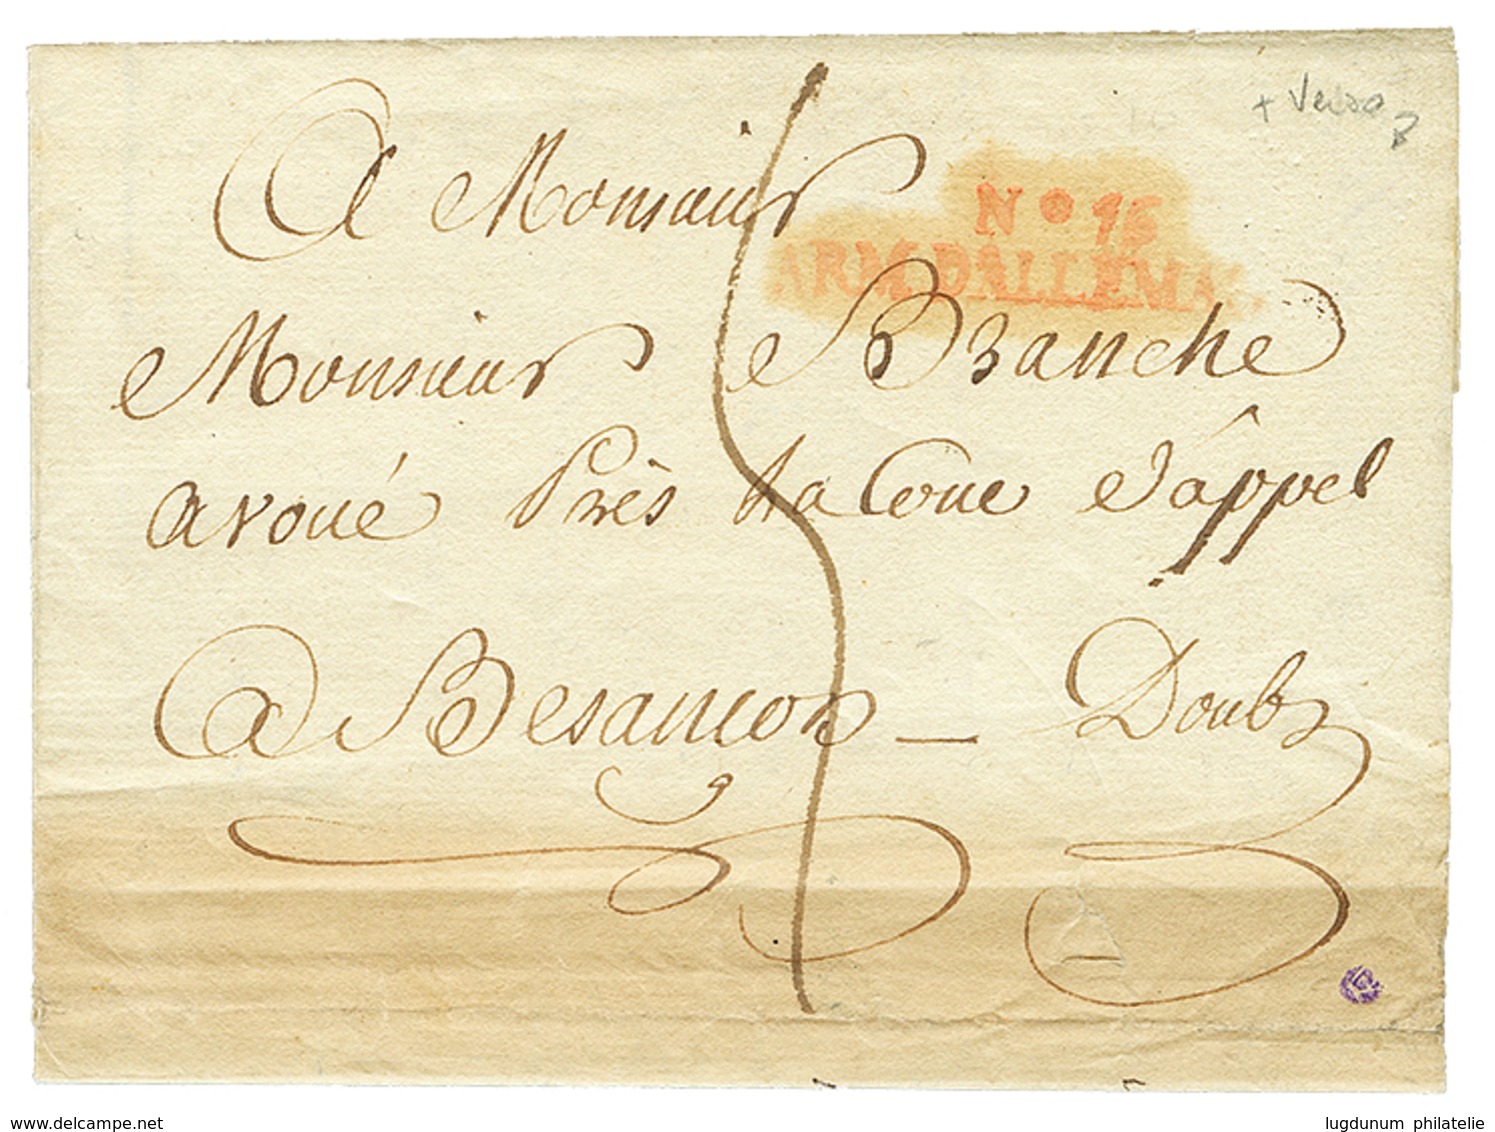 + Verso
A Monsieur
N° 16
ARM. D'ALLEMAG
Monsieur Branche
avoué Près La Cour d'âppel
à Besançon — Doubs
delcampe.net
lugdunum philatelie